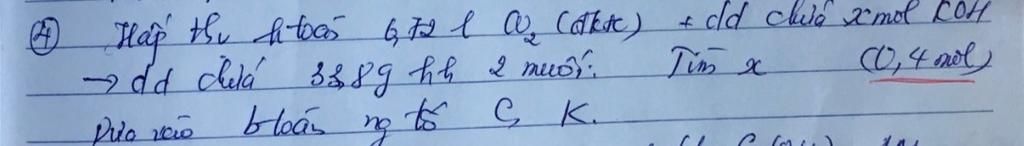 ④ Hấp thụ h toàn 6,72 l CO2 (đktc) + dd chứa x mol KOH
→ dd chứa 33,8g hh 2 muối. Tìm x (0,4 mol)
Dựa vào b toàn ng tố C, K.